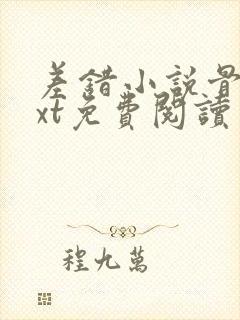 差錯小説骨
xt免費閱讀
程九萬